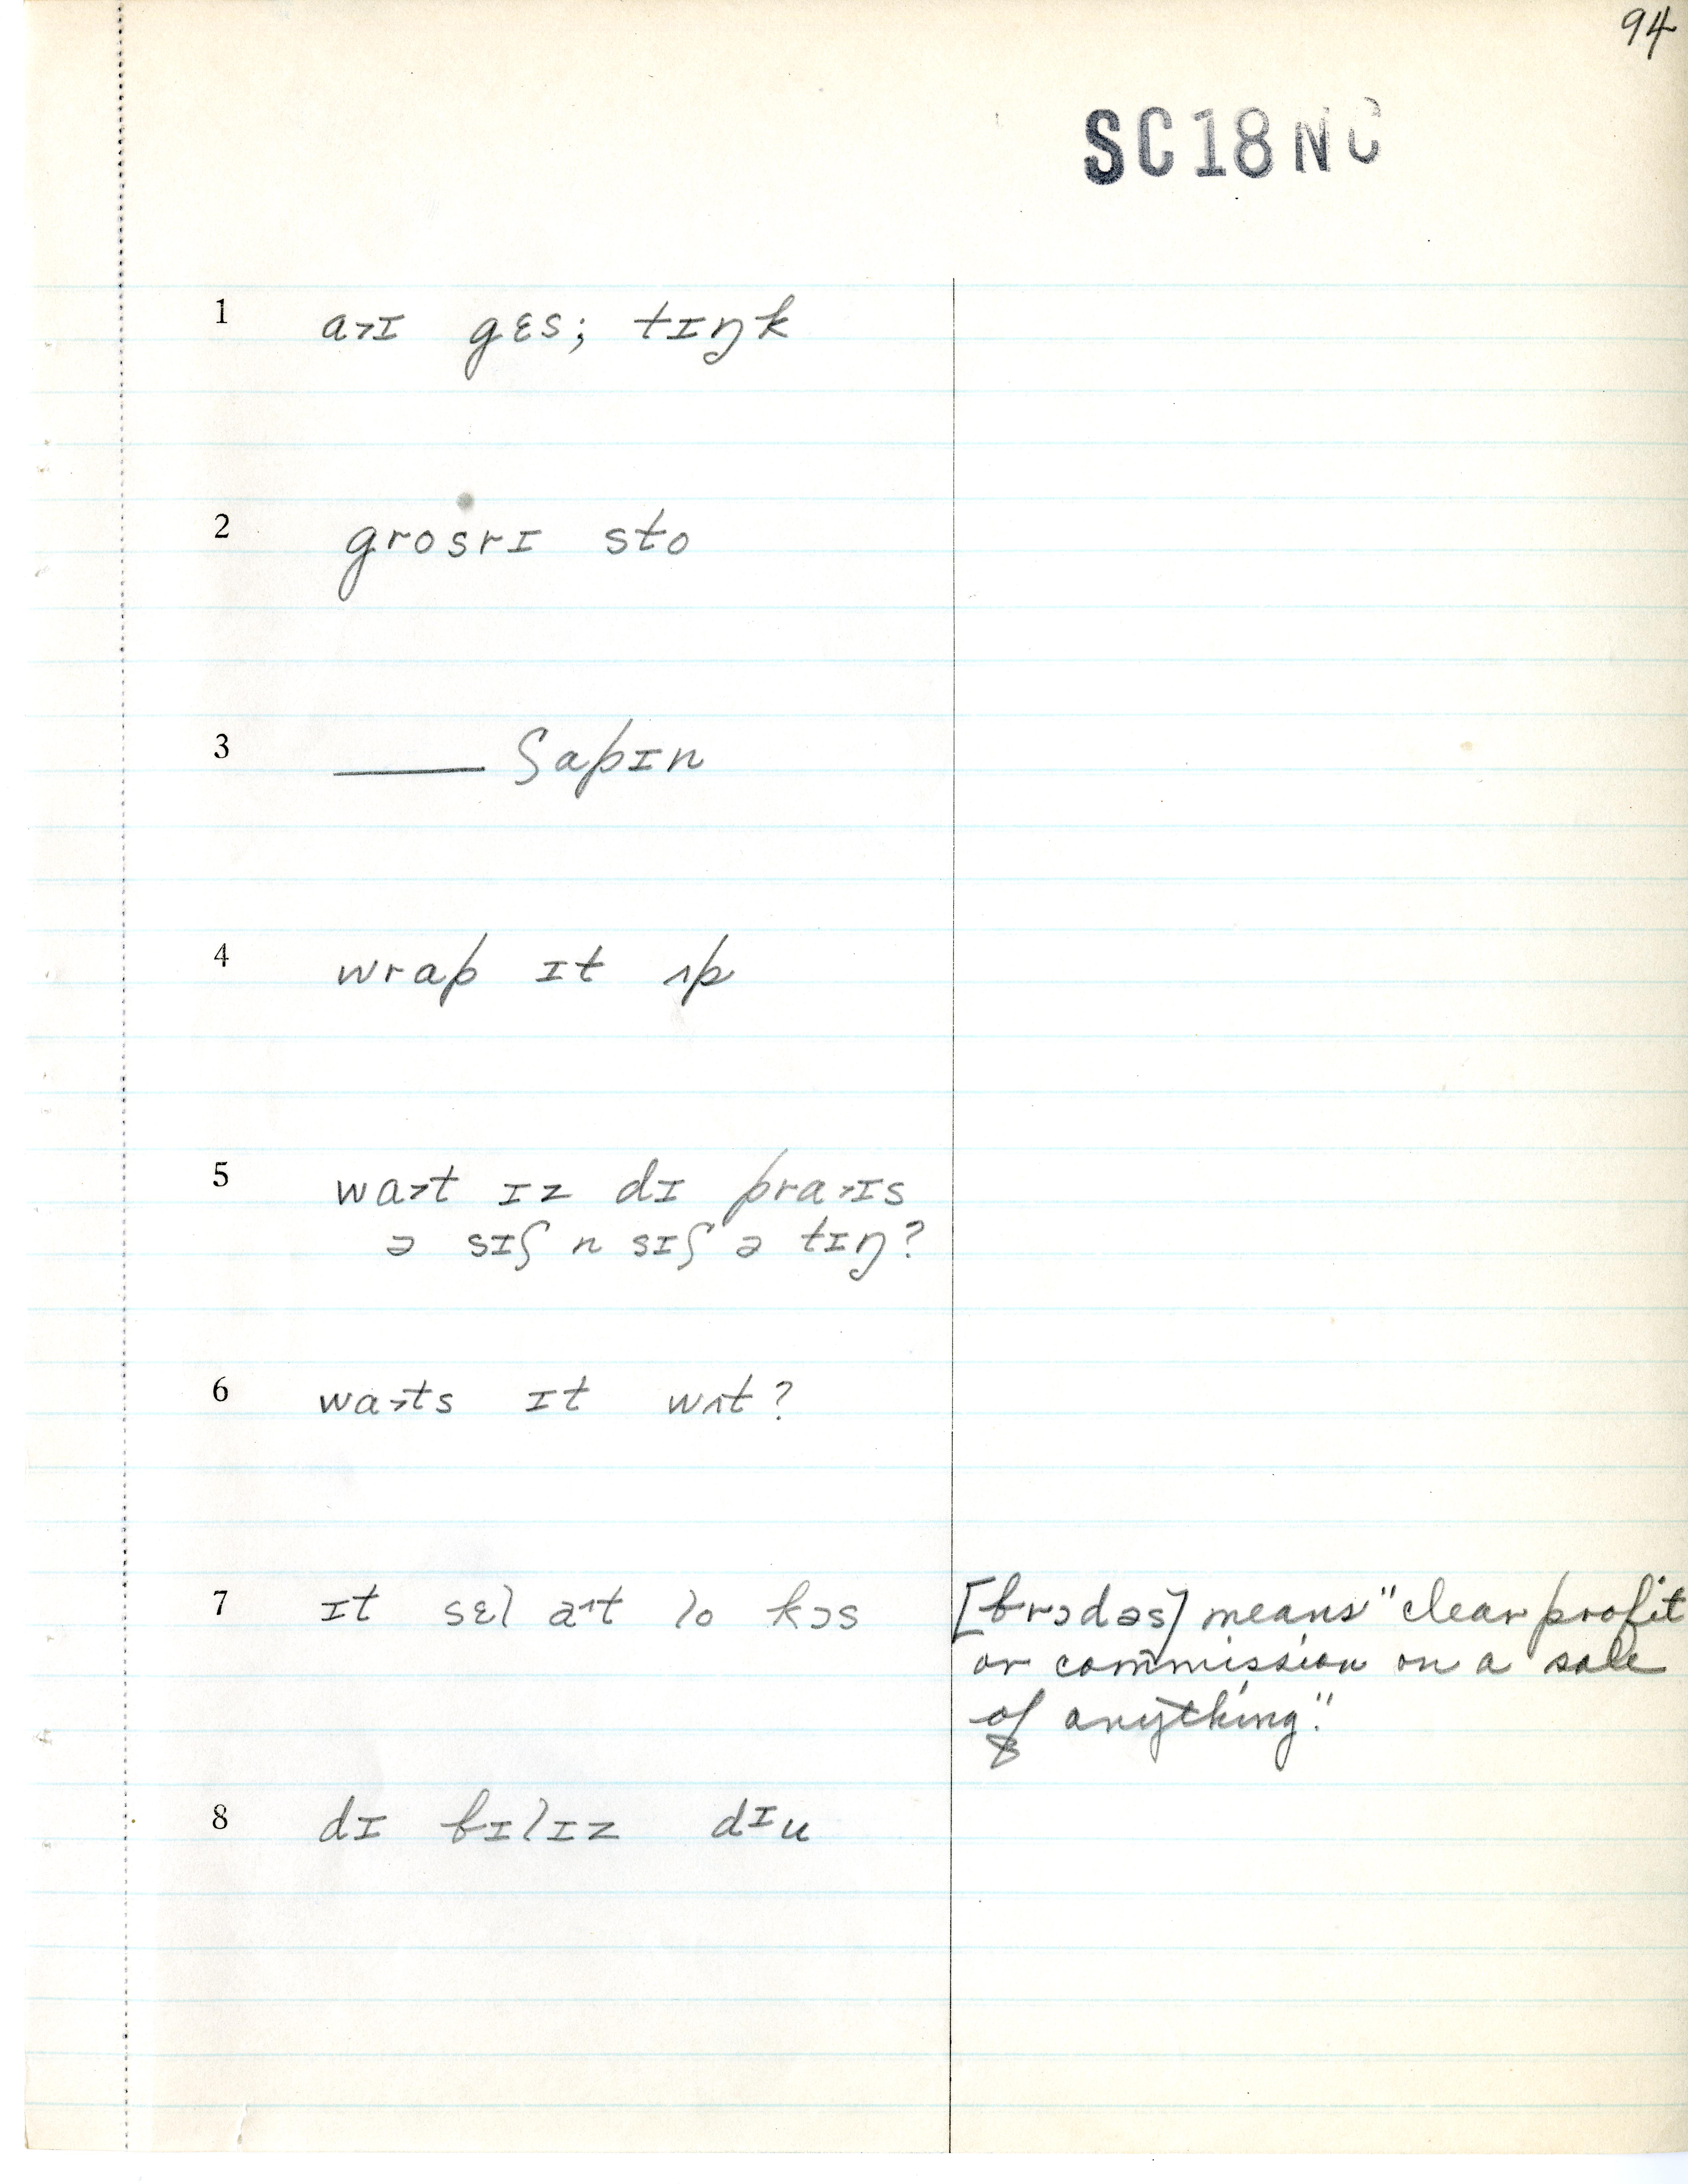 94
SC18NC
1 a˃ɪ gɛs; tɪŋk
2 grosrɪ sto
3 ——— ʃapɪn
4 wrap ɪt ʌp
5 wa˃t ɪz dɪ pra˃ɪs
ə sɪʃ n sɪʃ ə tɪŋ?
6 wa˃ts ɪt wʌt?
7 ɪt sɛl aʌt lo kɔs [brɔdəs] means "clear profit
or commission on a sale
of anything."
8 dɪ bɪlɪz dɪu